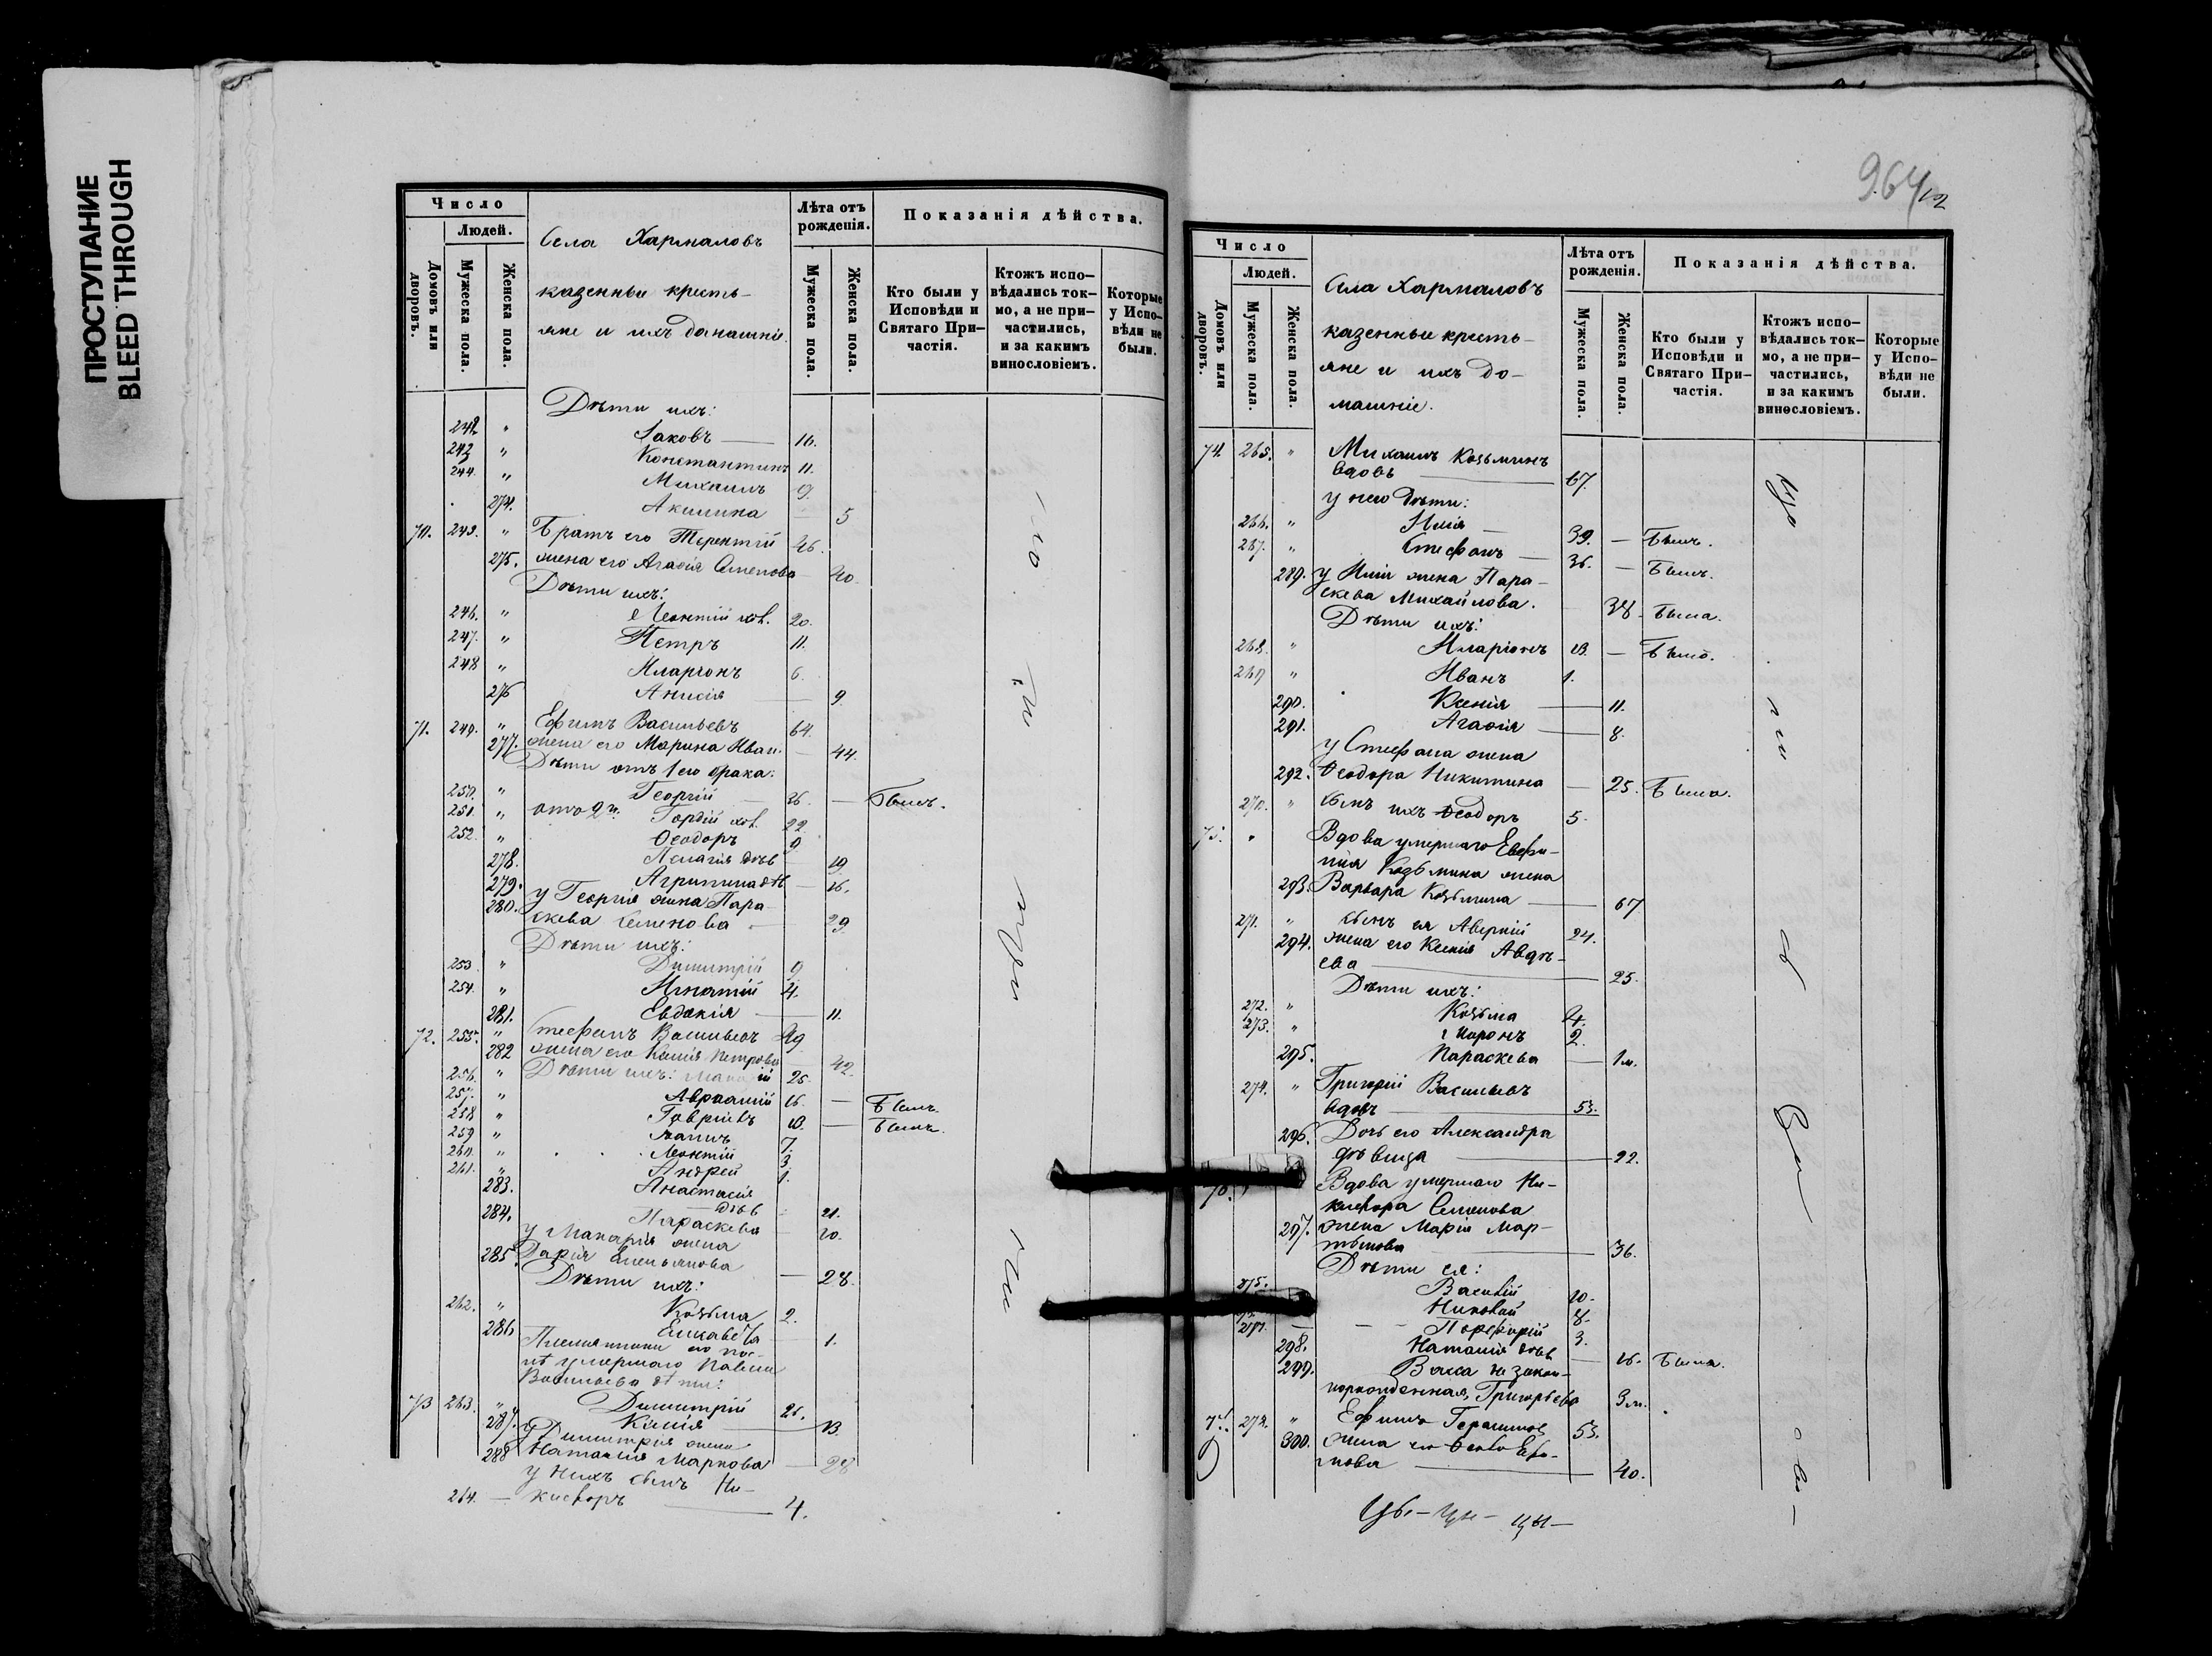 ПРОСТУПАНИЕ
BLEED THROUGH
Число
Людей.
Домовъ или дворовъ.
Мужеска пола.
Женска пола.
Села Хармаловъ
казенные кресть-
яне и ихъ домашніе.
Лѣта отъ рожденія.
Мужеска пола.
Женска пола.
Показанія дѣйства.
Кто были у Исповѣди и Святаго При-частія.
Ктожъ испо-вѣдались ток-мо, а не при-частились, и за какимъ винословіемъ.
Которые у Испо-вѣди не были.
Дѣти ихъ:
242. " Іаковъ — 16.
243 " Константинъ 11.
244. " Михаилъ 9.
274. Акилина 5
70. 245. " Братъ его Терентій 46.
275. жена его Агафія Семенова 40.
Дѣти ихъ:
246. " Леонтій хол. 20.
247. " Петръ 11.
248 " Иларіонъ 6.
276 Анисія — 9
71. 249. " Ефимъ Васильевъ 64.
277. жена его Марина Иван. — 44.
Дѣти отъ 1го брака:
250. " Георгій — 36. — Былъ.
251. " отъ 2го Гордій хол. 22
252. " Ѳеодоръ 9
278. Пелагія дѣв — 19
279. Агрипина дѣ — 16.
280. у Георгія жена Пара-
скева Семенова — 29
Дѣти ихъ:
253. " Димитрій 9.
254. " Игнатій 4.
281. Евдокія — 11.
72. 255. " Стефанъ Васильевъ 49
282 жена его Ксенія Петрова 42.
256. " Дѣти ихъ: Макарій 25.
257. " Аврамій 16. — Былъ.
258 " Гавріилъ 10. — Былъ.
259 " 7.
260. " Леонтій 3.
261. " Андрей 1.
283. Анастасія
дѣв — 21.
284. Параскева — 10.
у Макарія жена
285. Дарія Емельянова — 28.
Дѣти ихъ:
262. " Козьма 2.
286 Елисавета — 1.
Племянники его пос-
лѣ умершаго Павла
Васильева дѣти:
73 263. " Димитрій 26.
287. Ксенія — 13.
у Димитрія жена
288 Наталія Маркова — 28
у нихъ сынъ Ни-
264. — кифоръ — 4.
964
12
Число
Людей.
Домовъ или дворовъ.
Мужеска пола.
Женска пола.
Села Хармаловъ
казенные кресть-
яне и ихъ до-
машніе.
Лѣта отъ рожденія.
Мужеска пола.
Женска пола.
Показанія дѣйства.
Кто были у Исповѣди и Святаго При-частія.
Ктожъ испо-вѣдались ток-мо, а не при-частились, и за какимъ винословіемъ.
Которые у Испо-вѣди не были.
74. 265. " Михаилъ Козьминъ
вдовъ — 67.
у него дѣти:
266. " Илія — 39. — Былъ.
267. " Стефанъ — 36. — Былъ.
289. у Иліи жена Пара-
скева Михайлова. — 38 — Была.
Дѣти ихъ:
268. " Иларіонъ 13. — Былъ.
269 " Иванъ 1.
290. Ксенія — 11.
291. Агафія — 8.
у Стефана жена
292. Ѳеодора Никитина — 25. Была.
270. " сынъ ихъ Ѳеодоръ 5.
75. " Вдова умершаго Евфи-
мія Козьмина жена
293. Варвара Козьмина — 67
271. " сынъ ея Аверкій 24.
294. жена его Ксенія Авдѣ-
ева — 25.
Дѣти ихъ:
272. " Козьма 4.
273. " 2.
295. Параскева — 1м.
274. " Григорій Васильевъ
вдовъ — 53.
296. Дочь его Александра
дѣвица — 22.
76. Вдова умершаго Ни-
кифора Семенова
297. жена Марія Мар-
тынова — 36.
Дѣти ея:
275. Василій 10.
Николай 8.
277. — Порфирій 3.
298. Наталія дѣв — 16. Была.
299. Васса незакон-
норожденная, Григорьева 3м.
77. 278. " Ефимъ Герасимовъ 53.
300. жена его
— 40.